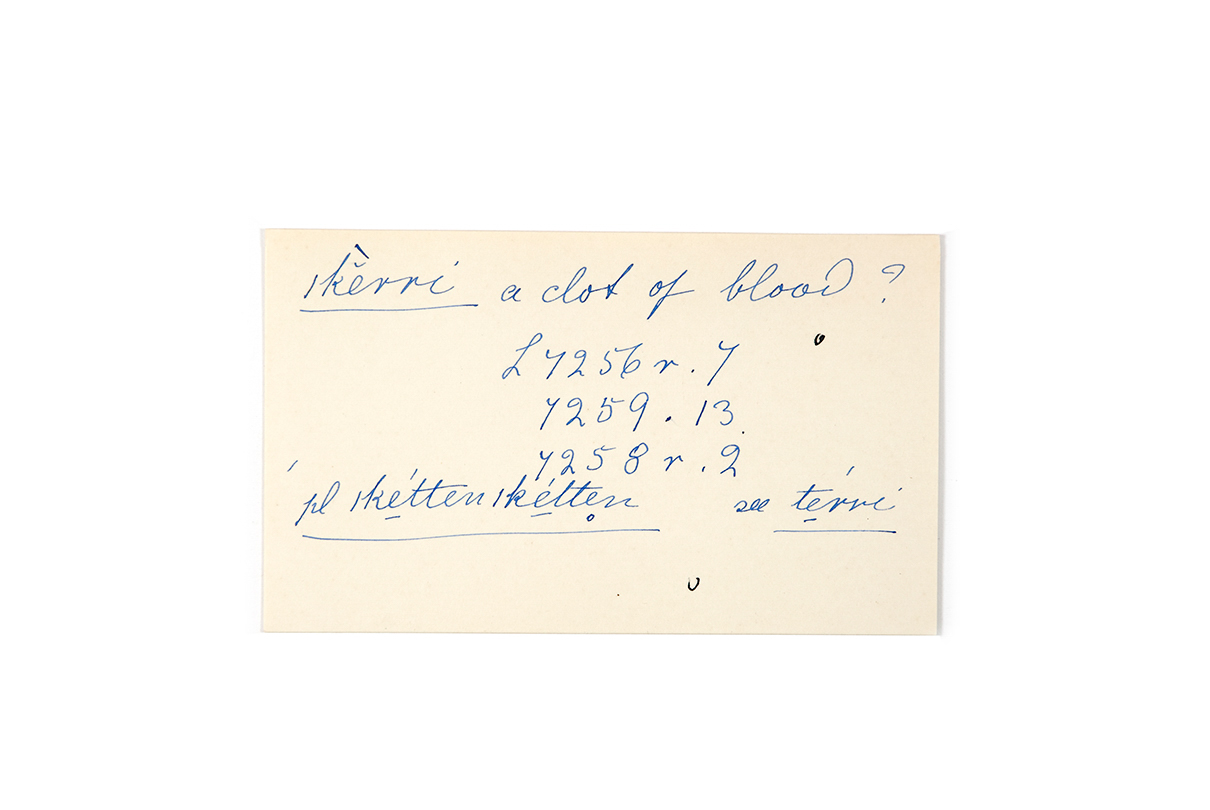 ıkĕrri a clot of blood ?
L 7256 r . 7
7259 . 13
7258 r . 2
pl ıké̱tten ıké̱tten see té̱rri